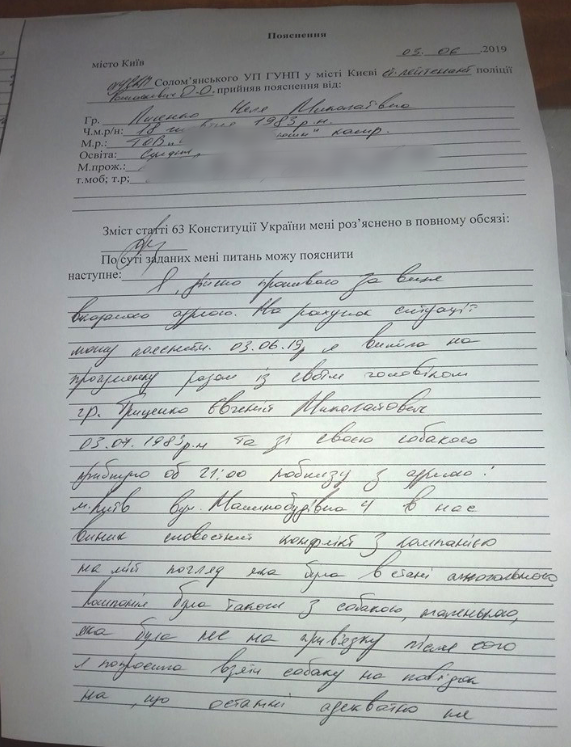 Пояснення
місто Київ 05.06 2019
Солом'янського УП ГУНП у місті Києві лейтенант поліції
О.О. прийняв пояснення від:
Гр. Неля Миколаївна
Ч.м.р/н: 18 1983 р.н.
М.р.:
Освіта: Середня,
М.прож.:
т.моб; т.р;
Зміст статті 63 Конституції України мені роз'яснено в повному обсязі:
По суті заданих мені питань можу пояснити
наступне: Я, дійсно проживаю за вище
вказаною адресою. На рахунок ситуації
можу пояснити. 03.06.19р я вийшла на
прогулянку разом із своїм чоловіком
гр. Гриценко Євгеній Миколайович
03.07.1983р.н та зі своєю собакою
прибл об 21:00 поблизу з адресою:
м. Київ вул. Машинобудівна 4 в нас
виник словестний конфлікт з компанією
на мій погляд яка була в стані алкогольного
компанія була також з собакою, маленькою,
яка була не на прив'язку після чого
я попросила взяти собаку на повідок
на що останні адекватно не